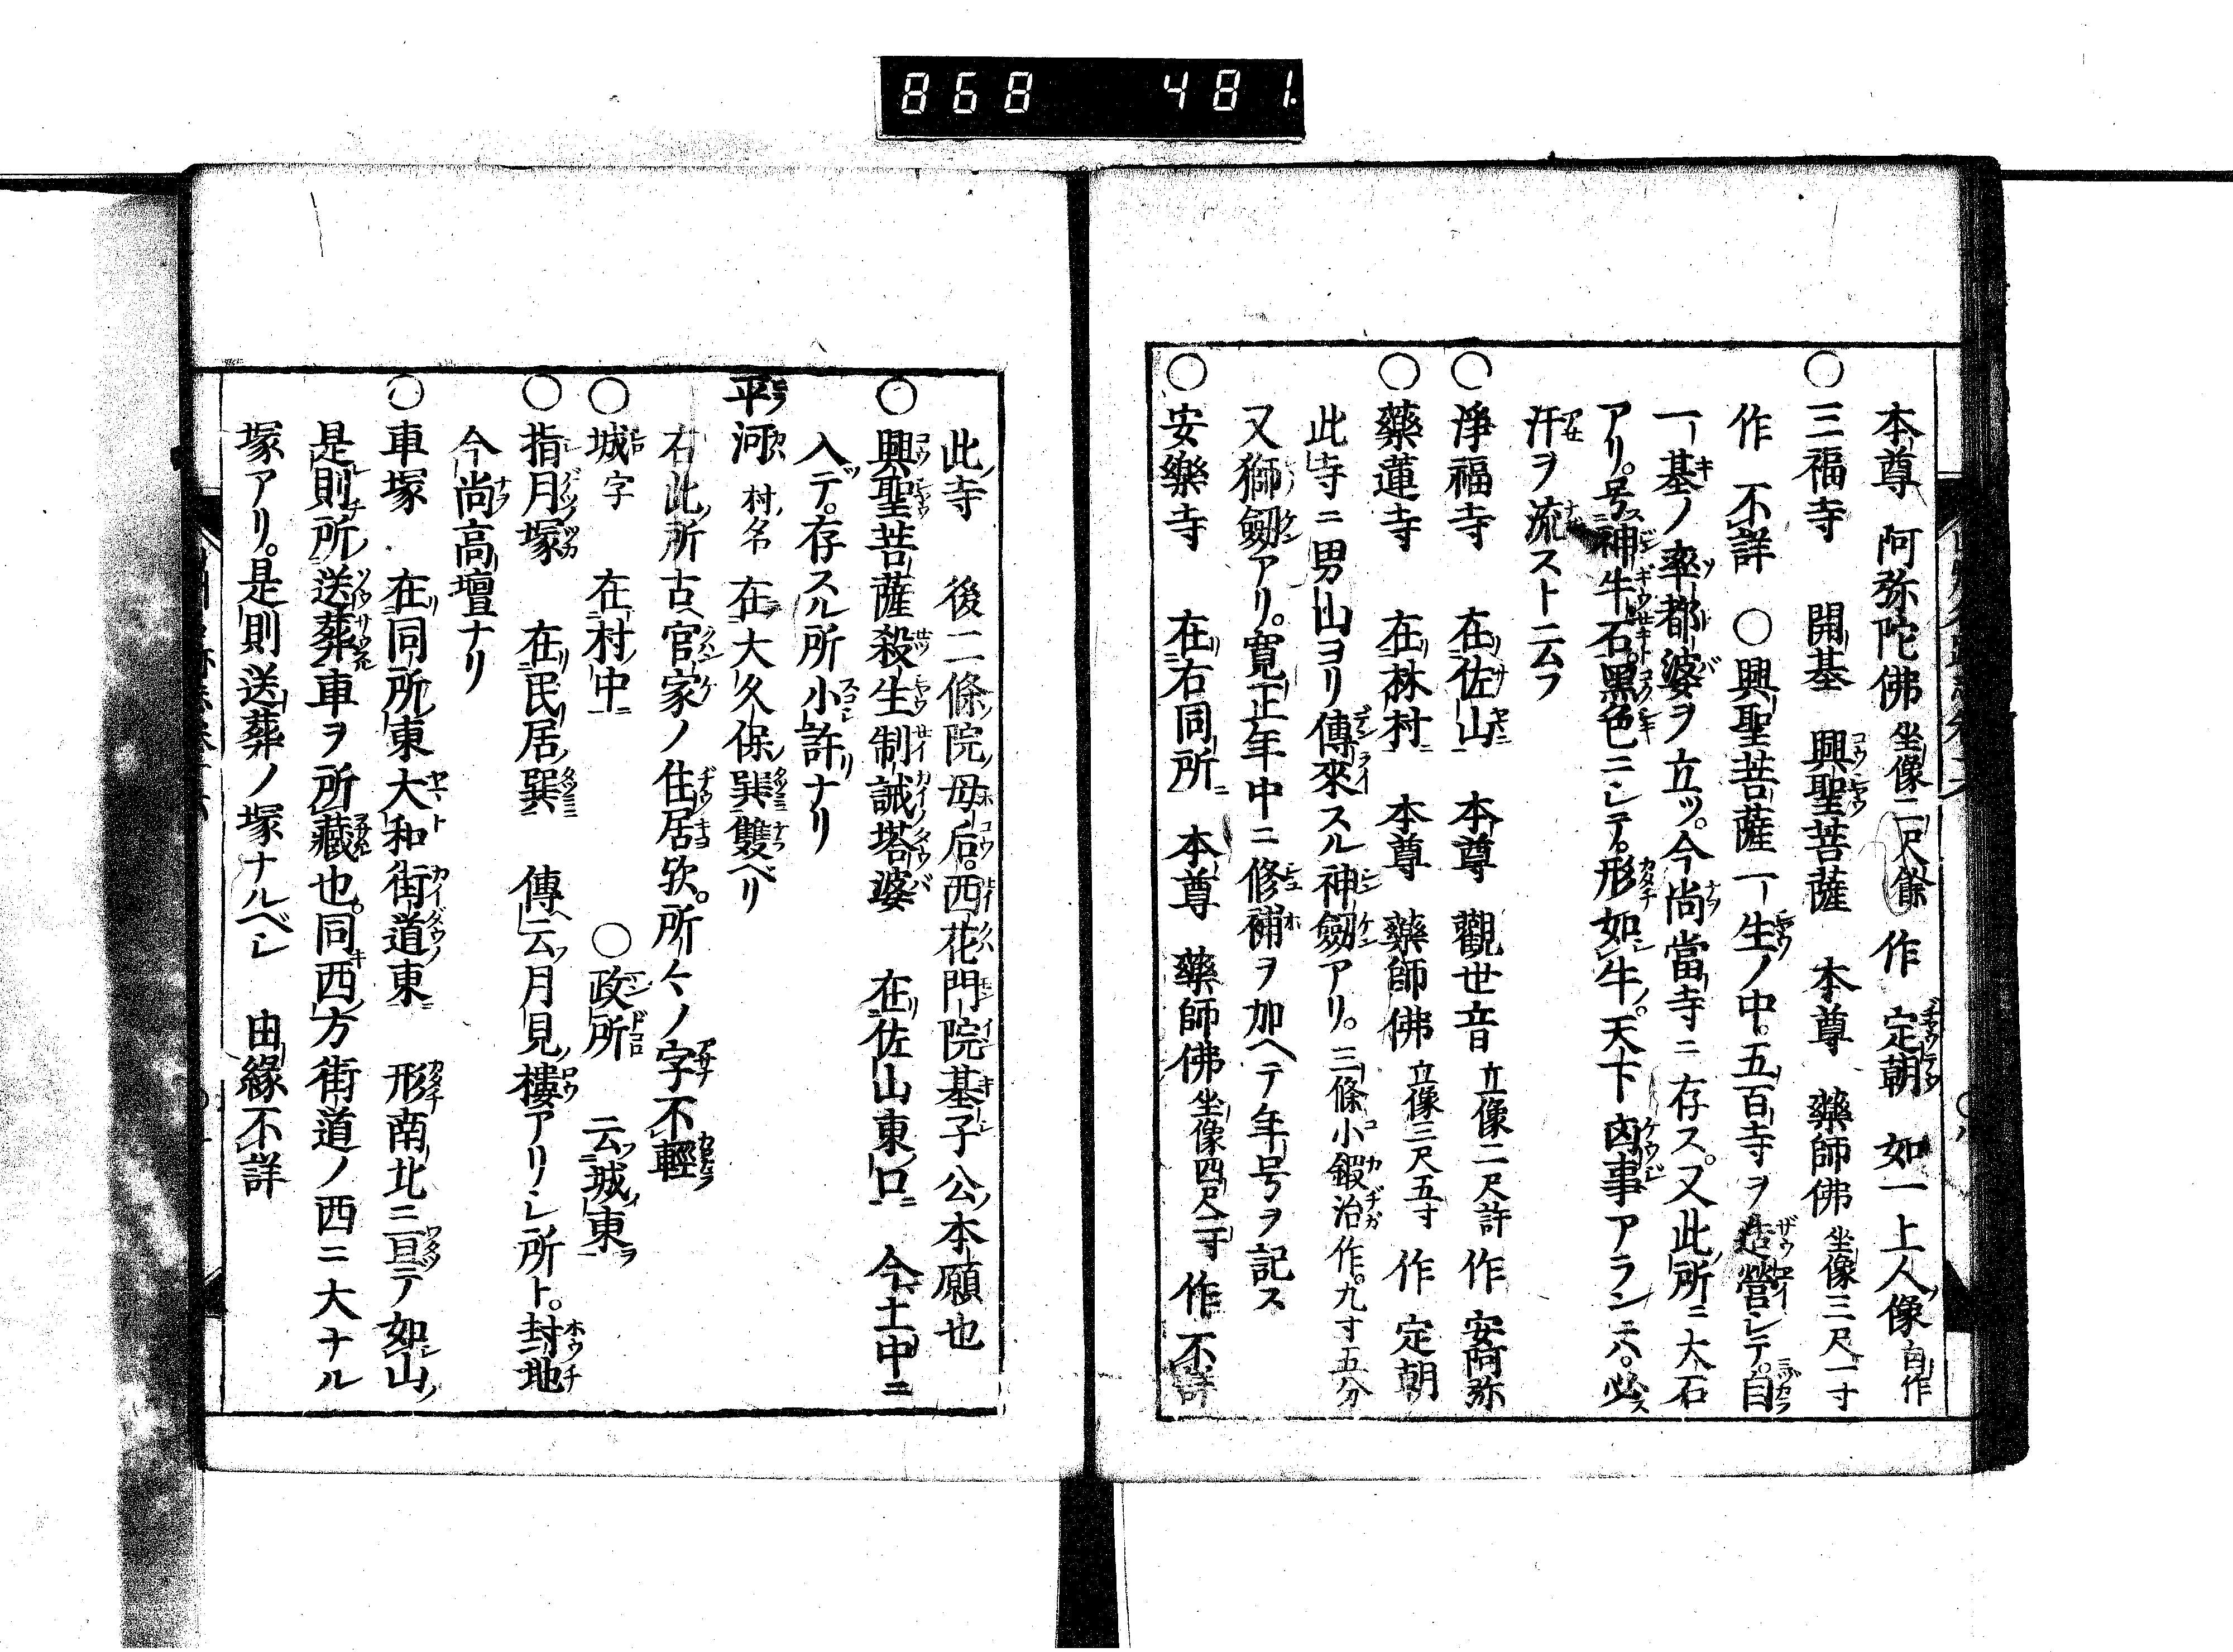 868 481.
本尊 阿弥陀佛 坐像二尺餘 作 定朝 如一上人像 自作
○三福寺 開基 興聖菩薩 本尊 藥師佛 坐像三尺一寸
作 不詳 ○興聖菩薩一生ノ中。五百寺ヲ造營シテ。自
一基ノ率都婆ヲ立ツ。今尚當寺ニ存ス。又此所ニ大石
アリ。号神牛石。黑色ニシテ。形如牛。天下凶事アランニハ。必
汗ヲ流スト云フ
○淨福寺 在佐山 本尊 觀世音 立像二尺許 作 安阿弥
○藥蓮寺 在林村 本尊 藥師佛 立像三尺五寸 作 定朝
此寺ニ男山ヨリ傳來スル神劔アリ。三條小鍛冶作。九寸五分
又獅劔アリ。寛正年中ニ修補ヲ加ヘテ年号ヲ記ス
○安樂寺 在右同所 本尊 藥師佛 坐像四尺一寸 作 不詳
此寺 後二條院母后。西花門院基子公本願也
○興聖菩薩殺生制誡塔婆 在佐山東口 今土中ニ
入テ。存スル所小許ナリ
平河 村名 在大久保巽雙ベリ
右此所古官家ノ住居欤。所々ノ字不輕
○城 字 在村中 ○政所 云城東ヲ
○指月塚 在民居巽 傳云月見樓アリシ所ト。封地
今尚高壇ナリ
○車塚 在同所東大和街道東 形南北ニ亘テ如山
是則所送葬車ヲ所藏也。同西方街道ノ西ニ大ナル
塚アリ。是則送葬ノ塚ナルベシ 由緣不詳